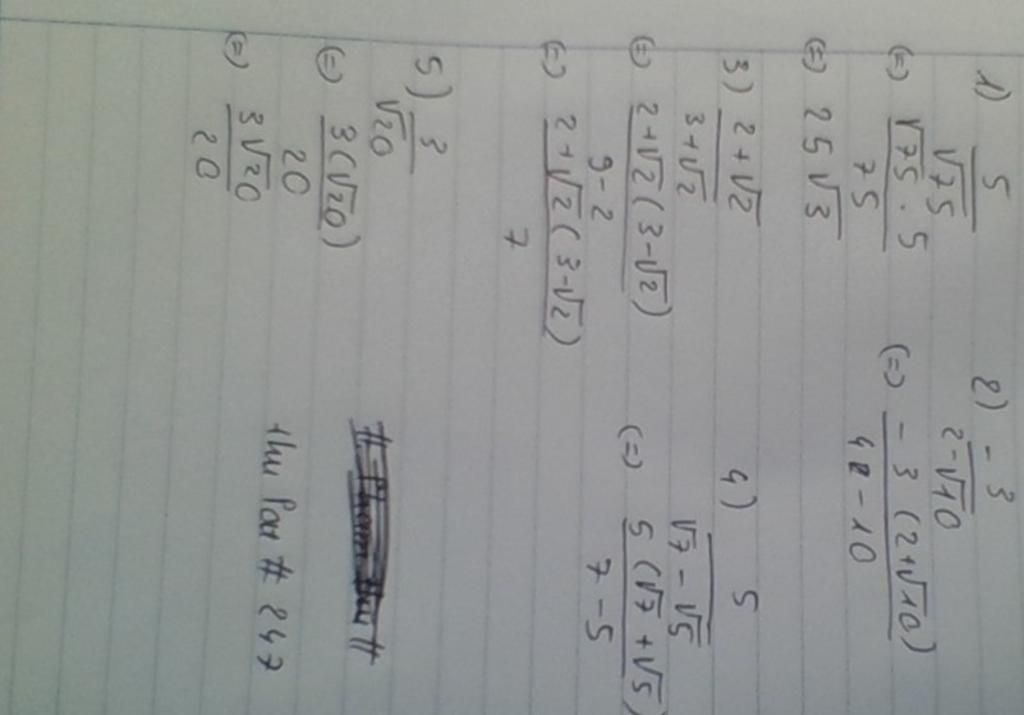 1) 5/√75
(=) √75 . 5 / 75
(=) 25√3
2) - 3/2-√10
(=) - 3 (2+√10) / 4 - 10
3) 2+√2 / 3+√2
(=) 2+√2 (3-√2) / 9-2
(=) 2+√2 (3-√2) / 7
4) 5 / √7 - √5
(=) 5 (√7 + √5) / 7 - 5
5) 3/√20
(=) 3(√20) / 20
(=) 3√20 / 20
# 247